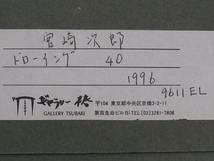 宮崎次郎
ドローイング 40
1996
9611EL
ギャラリー椿
GALLERY TSUBAKI
〒104 東京都中央区京橋3-2-11
第百生命ビル1F TEL(03)3281-7808